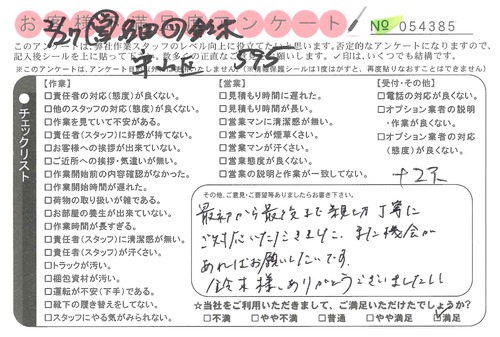 お客様満足度アンケート
№ 054385
このアンケートは、弊社作業スタッフのレベル向上に役立てたいと思います。否定的なアンケートになりますので、
※このアンケートは
チェックリスト
【作業】
□責任者の対応(態度)が良くない。
□他のスタッフの対応(態度)が良くない。
□作業を見ていて不安がある。
□責任者(スタッフ)に好感が持てない。
□お客様への挨拶が出来ていない。
□ご近所への挨拶・気遣いが無い。
□作業開始前の内容確認がなかった。
□作業開始時間が遅れた。
□荷物の取り扱いが雑である。
□お部屋の養生が出来ていない。
□作業時間が長すぎる。
□責任者(スタッフ)に清潔感が無い。
□責任者(スタッフ)が汗くさい。
□トラックが汚い。
□梱包資材が汚い。
□運転が不安(下手)である。
□靴下の履き替えをしてない。
□スタッフにやる気がみられない。
【営業】
□見積もり時間に遅れた。
□見積もり時間が長い。
□営業マンに清潔感が無い。
□営業マンが煙草くさい。
□営業マンが汗くさい。
□営業態度が良くない。
□営業の説明と作業が一致してない。
【受付・その他】
□電話の対応が良くない。
□オプション業者の説明
・作業が良くない。
□オプション業者の対応
(態度)が良くない。
その他、ご意見・ご要望等ありましたらお書き下さい。
最初から最後まで親切丁寧に
ご対応いただきました。また機会が
あればお願いしたいです。
鈴木様、ありがとうございました!!
☆当社をご利用いただきまして、ご満足いただけたでしょうか?
□不満 □やや不満 □普通 □やや満足 ☑満足